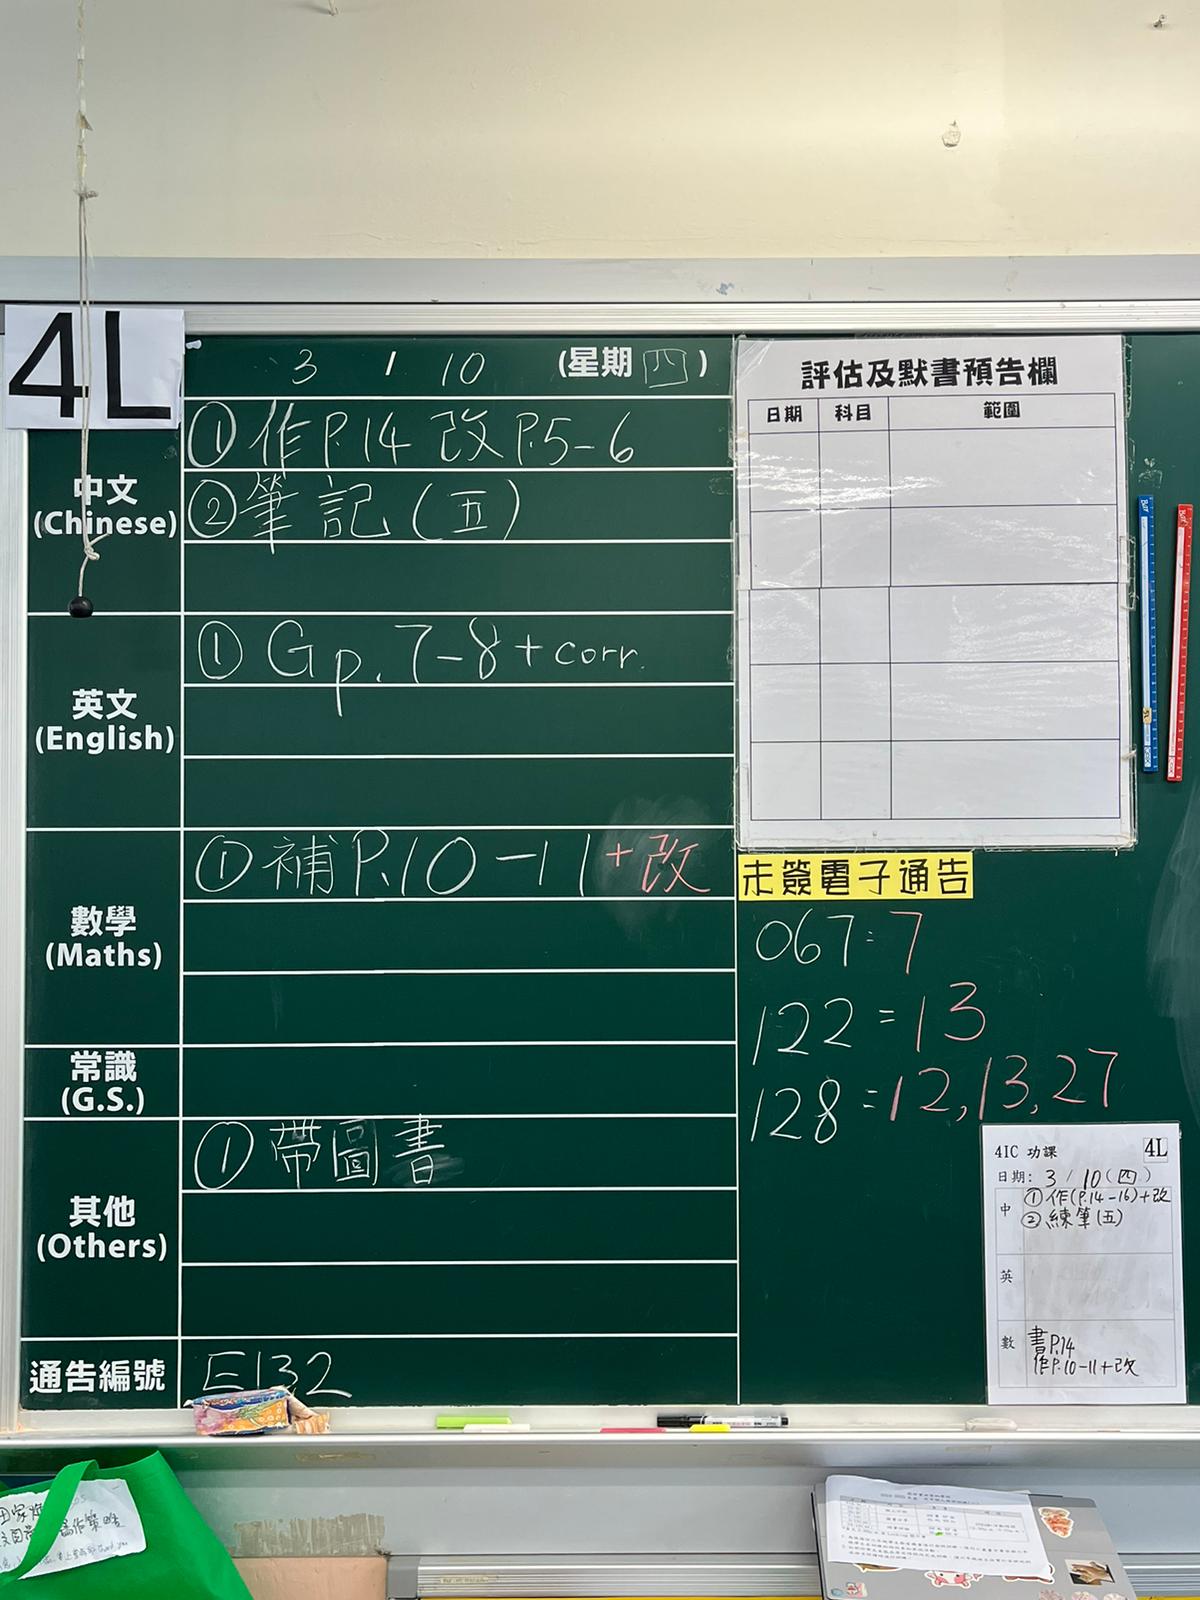 4L
3 / 10 (星期四)
中文
(Chinese)
① 作P.14 改P.5-6
② 筆記(五)
英文
(English)
① Gp. 7-8 + corr.
數學
(Maths)
① 補P.10-11+改
常識
(G.S.)
其他
(Others)
① 帶圖書
通告編號
E132
評估及默書預告欄
日期 科目 範圍
未簽電子通告
067:7
122=13
128=12,13,27
4IC 功課 4L
日期: 3/10(四)
中 ①作(P.14-16)+改
②練筆(五)
英
數 書P.14
作P.10-11+改